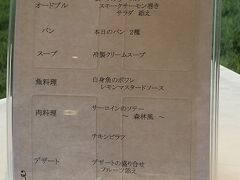 オードブル スモークサーモン巻き
サラダ 添え
パン 本日のパン 2種
スープ 特製クリームスープ
魚料理 白身魚のポワレ
レモンマスタードソース
肉料理 サーロインのソテー
～ 森林風 ～
チキンピラフ
デザート デザートの盛り合せ
フルーツ添え